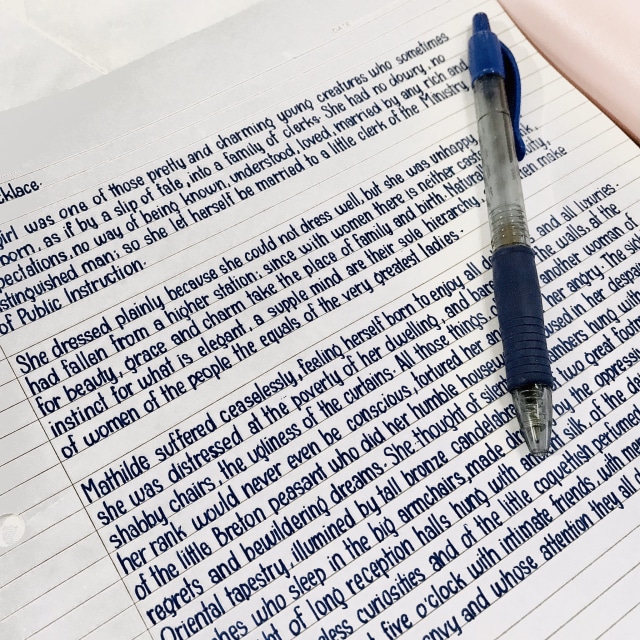 cklace.
girl was one of those pretty and charming young creatures who sometimes
born, as if by a slip of fate, into a family of clerks. She had no dowry, no
pectations, no way of being known, understood, loved, married by any rich and
stinguished man; so she let herself be married to a little clerk of the Ministry
of Public Instruction.
She dressed plainly because she could not dress well, but she was unhappy
had fallen from a higher station; since with women there is neither caste
for beauty, grace and charm take the place of family and birth. Natural
instinct for what is elegant, a supple mind are their sole hierarchy, make
of women of the people the equals of the very greatest ladies.
Mathilde suffered ceaselessly, feeling herself born to enjoy all and all luxuries.
she was distressed at the poverty of her dwelling, the walls, at the
shabby chairs, the ugliness of the curtains. All those things, another woman of
her rank would never even be conscious, tortured her her angry. The
of the little Breton peasant who did her humble in her
regrets and bewildering dreams. She thought of hung with
Oriental tapestry, illumined by tall bronze candelabra, two great
who sleep in the big armchairs, made by the
of long reception halls hung with silk of the
curiosities and of the little coquettish
five o'clock with intimate friends, with
and whose attention they all